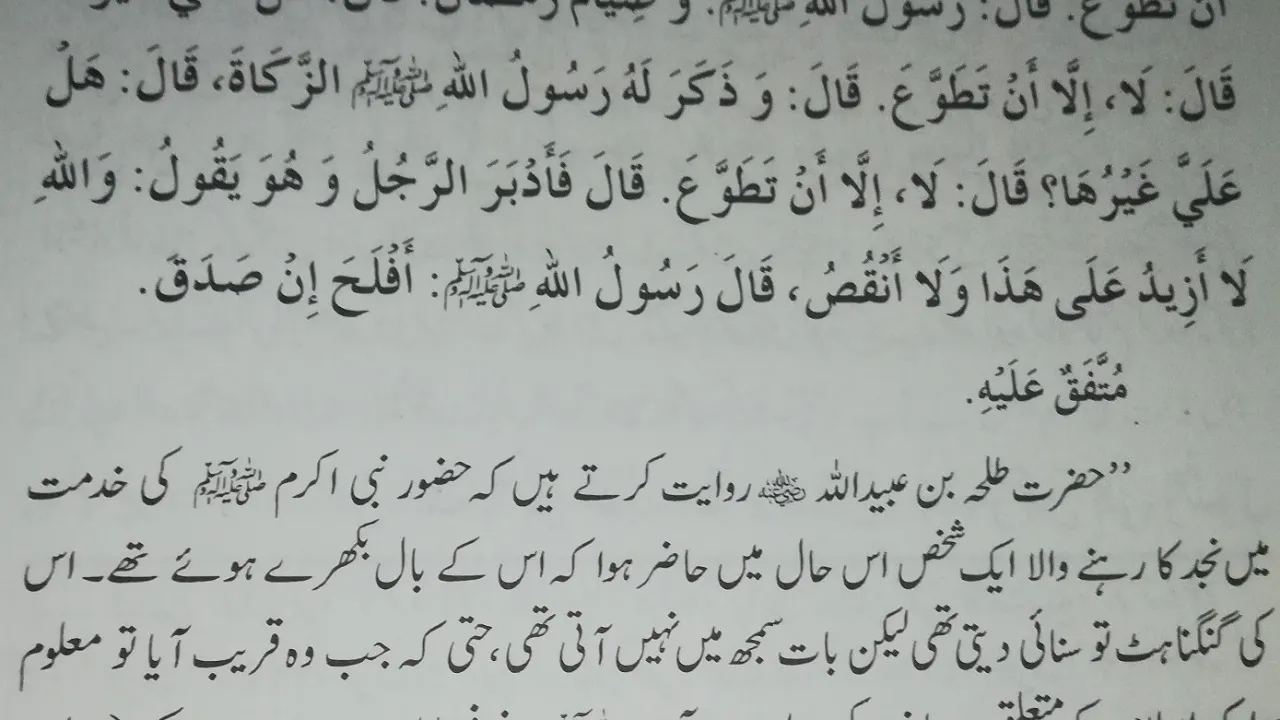 أَنْ تَطَوَّعَ. قَالَ: رَسُولُ اللهِ ﷺ: وَ صِيَامُ رَمَضَانَ. قَالَ:
قَالَ: لَا، إِلَّا أَنْ تَطَوَّعَ. قَالَ: وَ ذَكَرَ لَهُ رَسُولُ اللهِ ﷺ الزَّكَاةَ، قَالَ: هَلْ
عَلَيَّ غَيْرُهَا؟ قَالَ: لَا، إِلَّا أَنْ تَطَوَّعَ. قَالَ فَأَدْبَرَ الرَّجُلُ وَ هُوَ يَقُولُ: وَاللهِ
لَا أَزِيدُ عَلَى هَذَا وَلَا أَنْقُصُ، قَالَ رَسُولُ اللهِ ﷺ: أَفْلَحَ إِنْ صَدَقَ.
مُتَّفَقٌ عَلَيْهِ.
’’حضرت طلحہ بن عبیداللہ ؓ روایت کرتے ہیں کہ حضور نبی اکرم ﷺ کی خدمت
میں نجد کا رہنے والا ایک شخص اس حال میں حاضر ہوا کہ اس کے بال بکھرے ہوئے تھے۔ اس
کی گنگناہٹ تو سنائی دیتی تھی لیکن بات سمجھ میں نہیں آتی تھی، حتی کہ جب وہ قریب آیا تو معلوم